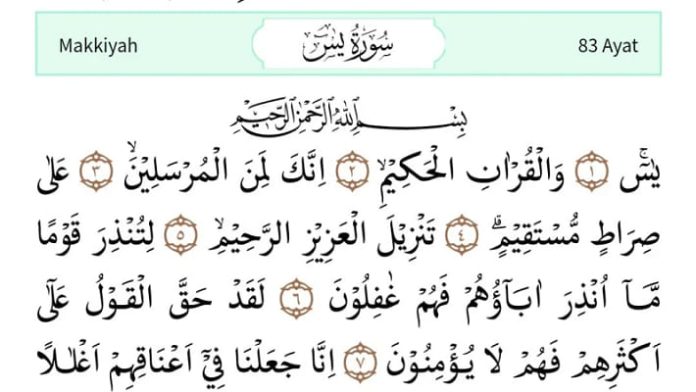 Makkiyah سُوْرَةُ يٰسۤ 83 Ayat
بِسْمِ اللّٰهِ الرَّحْمٰنِ الرَّحِيْمِ
يٰسۤ ۝١ وَالْقُرْاٰنِ الْحَكِيْمِۙ ۝٢ اِنَّكَ لَمِنَ الْمُرْسَلِيْنَۙ ۝٣ عَلٰى
صِرَاطٍ مُّسْتَقِيْمٍۗ ۝٤ تَنْزِيْلَ الْعَزِيْزِ الرَّحِيْمِۙ ۝٥ لِتُنْذِرَ قَوْمًا
مَّآ اُنْذِرَ اٰبَاۤؤُهُمْ فَهُمْ غٰفِلُوْنَ ۝٦ لَقَدْ حَقَّ الْقَوْلُ عَلٰٓى
اَكْثَرِهِمْ فَهُمْ لَا يُؤْمِنُوْنَ ۝٧ اِنَّا جَعَلْنَا فِيْٓ اَعْنَاقِهِمْ اَغْلٰلًا